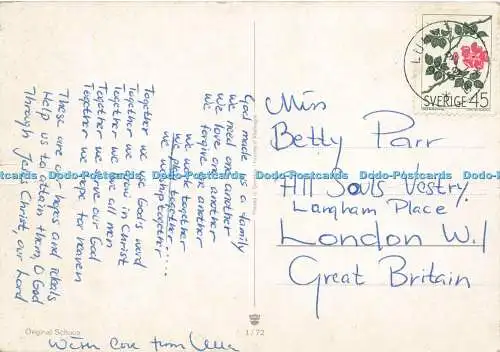 God made us a family
We need one another
We love one another
We forgive one another
We work together
We play together....
We worship together
Together we use God's word
Together we grow in Christ
Together we love all men
Together we serve our God
Together we hope for heaven
These are our hopes and ideals
Help us to attain them, O God
Through Jesus Christ, our Lord
With love from Ulla
Miss
Betty Parr
All Souls Vestry
Langham Place
London W.1
Great Britain
SVERIGE 45
Original Schuco
1/72
Dodo-Postcards Dodo-Postcards Dodo-Postcards Dodo-Postcards Dodo-Postcards